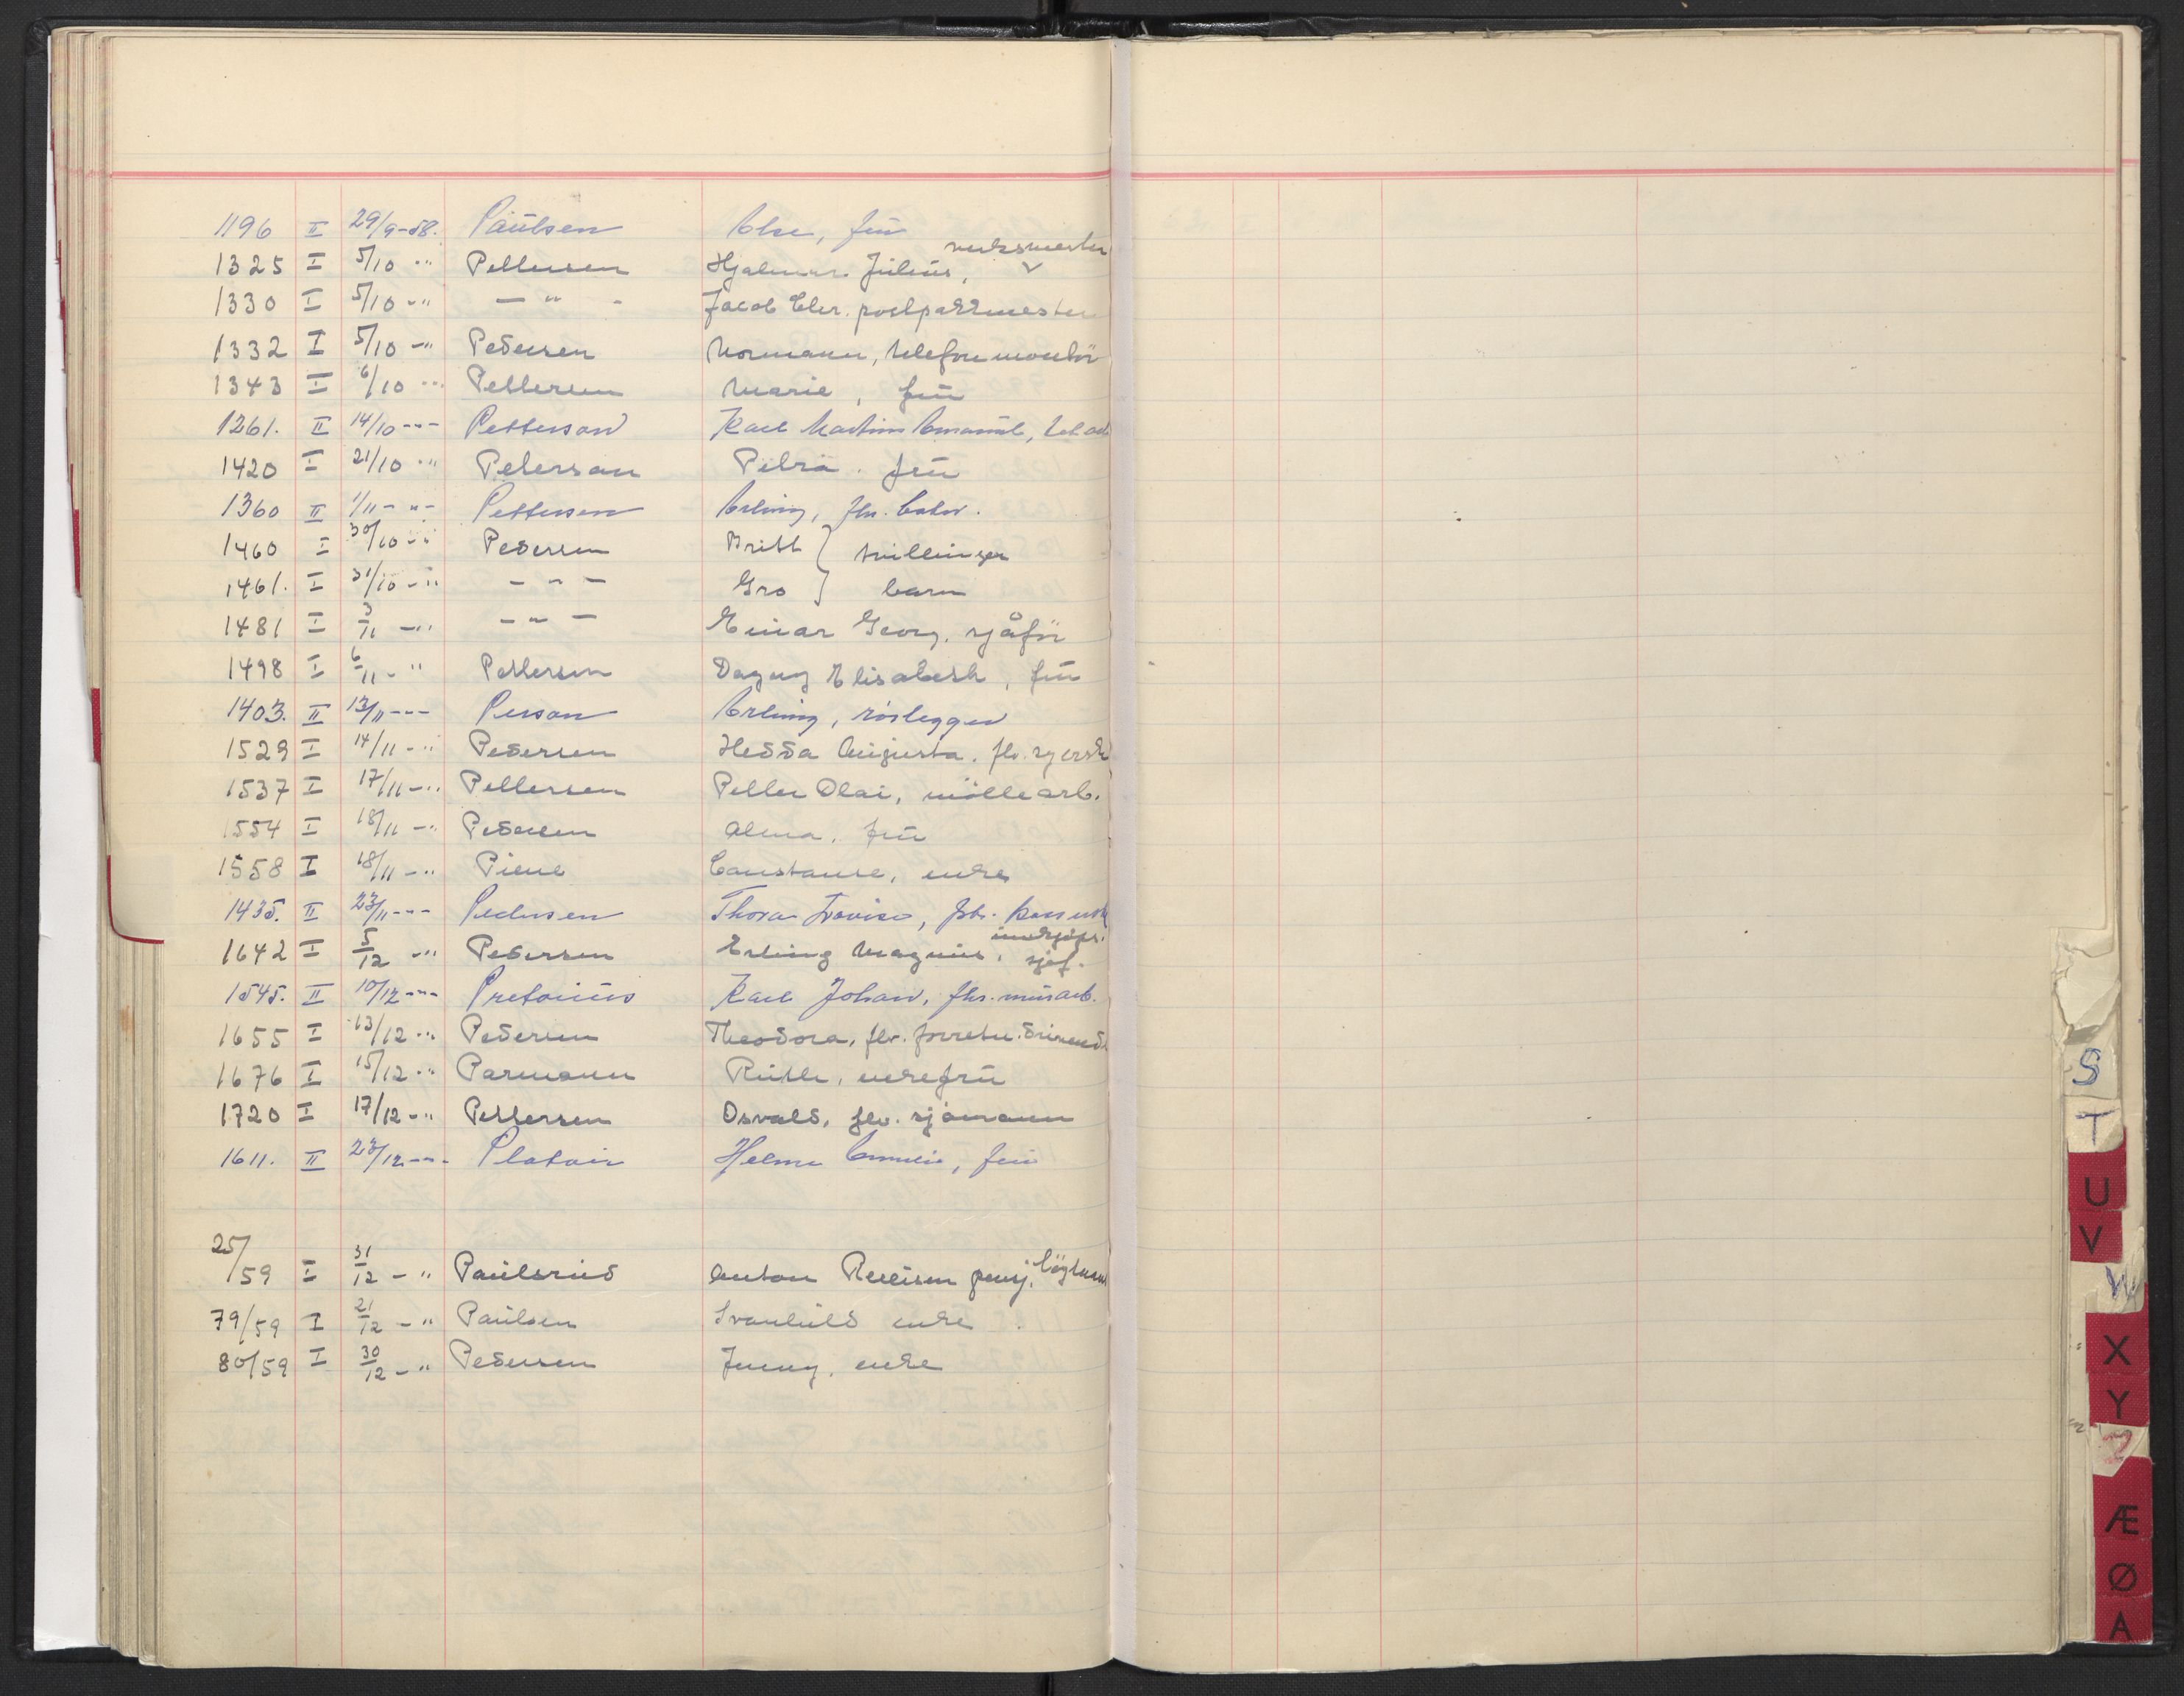 1196 II 29/9-58. Paulsen Else, frü
verksmester
1325 I 5/10 -" Pettersen Hjalmar Julius, v
1330 I 5/10 -" - " - Jacob Chr. postpakkmester
1332 I 5/10 -" Pedersen Normann, telefonmontör
1343 I 6/10 -" Pettersen Marie, frü
1261. II 14/10 -"- Petterson Karl Martin Emanuel,
1420 I 21/10 -" Peterson Petra. frü
1360 II 1/11 -"- Pettersen Erling, fhv.
1460 I 30/10 -" Pedersen Britt } tvillinger
1461. I 31/10 -" - " - Gro } barn
1481 I 3/11 -" - " - Einar Georg. sjåför
1498 I 6/11 -" Pettersen Dagny Elisabeth, frü
1403. II 13/11 -"- Person Erling, rörlegger
1529 I 14/11 -" Pedersen Hedda Augusta. fhv. syerske
1537 I 17/11 -" Pettersen Petter Olai, möllearb.
1554 I 18/11 -" Pedersen Alma. frü
1558 I 18/11 -" Piene Constance, enke
1435. II 23/11 -"- Pedersen Thora Lovise, fhv.
innkjöps.
1642 I 5/12 -" Pedersen Erling Magnus, sjef.
1545. II 10/12 -"- Pretorius Karl Johan, fhv. murarb.
1655 I 13/12 -" Pedersen Theodora, fhv. forretn.drivende
1676 I 15/12 -" Parmann Ruth, enkefrü
1720 I 17/12 -" Pettersen Osvald, fhv. sjömann
1611. II 23/12 -"- Platou Helma Emmilie, frü
25/59 I 31/12 -" Paulsrud Anton penj.
79/59 I 21/12 -" Paulsen Svanhild enke.
80/59 I 30/12 -" Pedersen Jenny, enke
S
T
U
V
W
X
Y
Æ
Ø
A